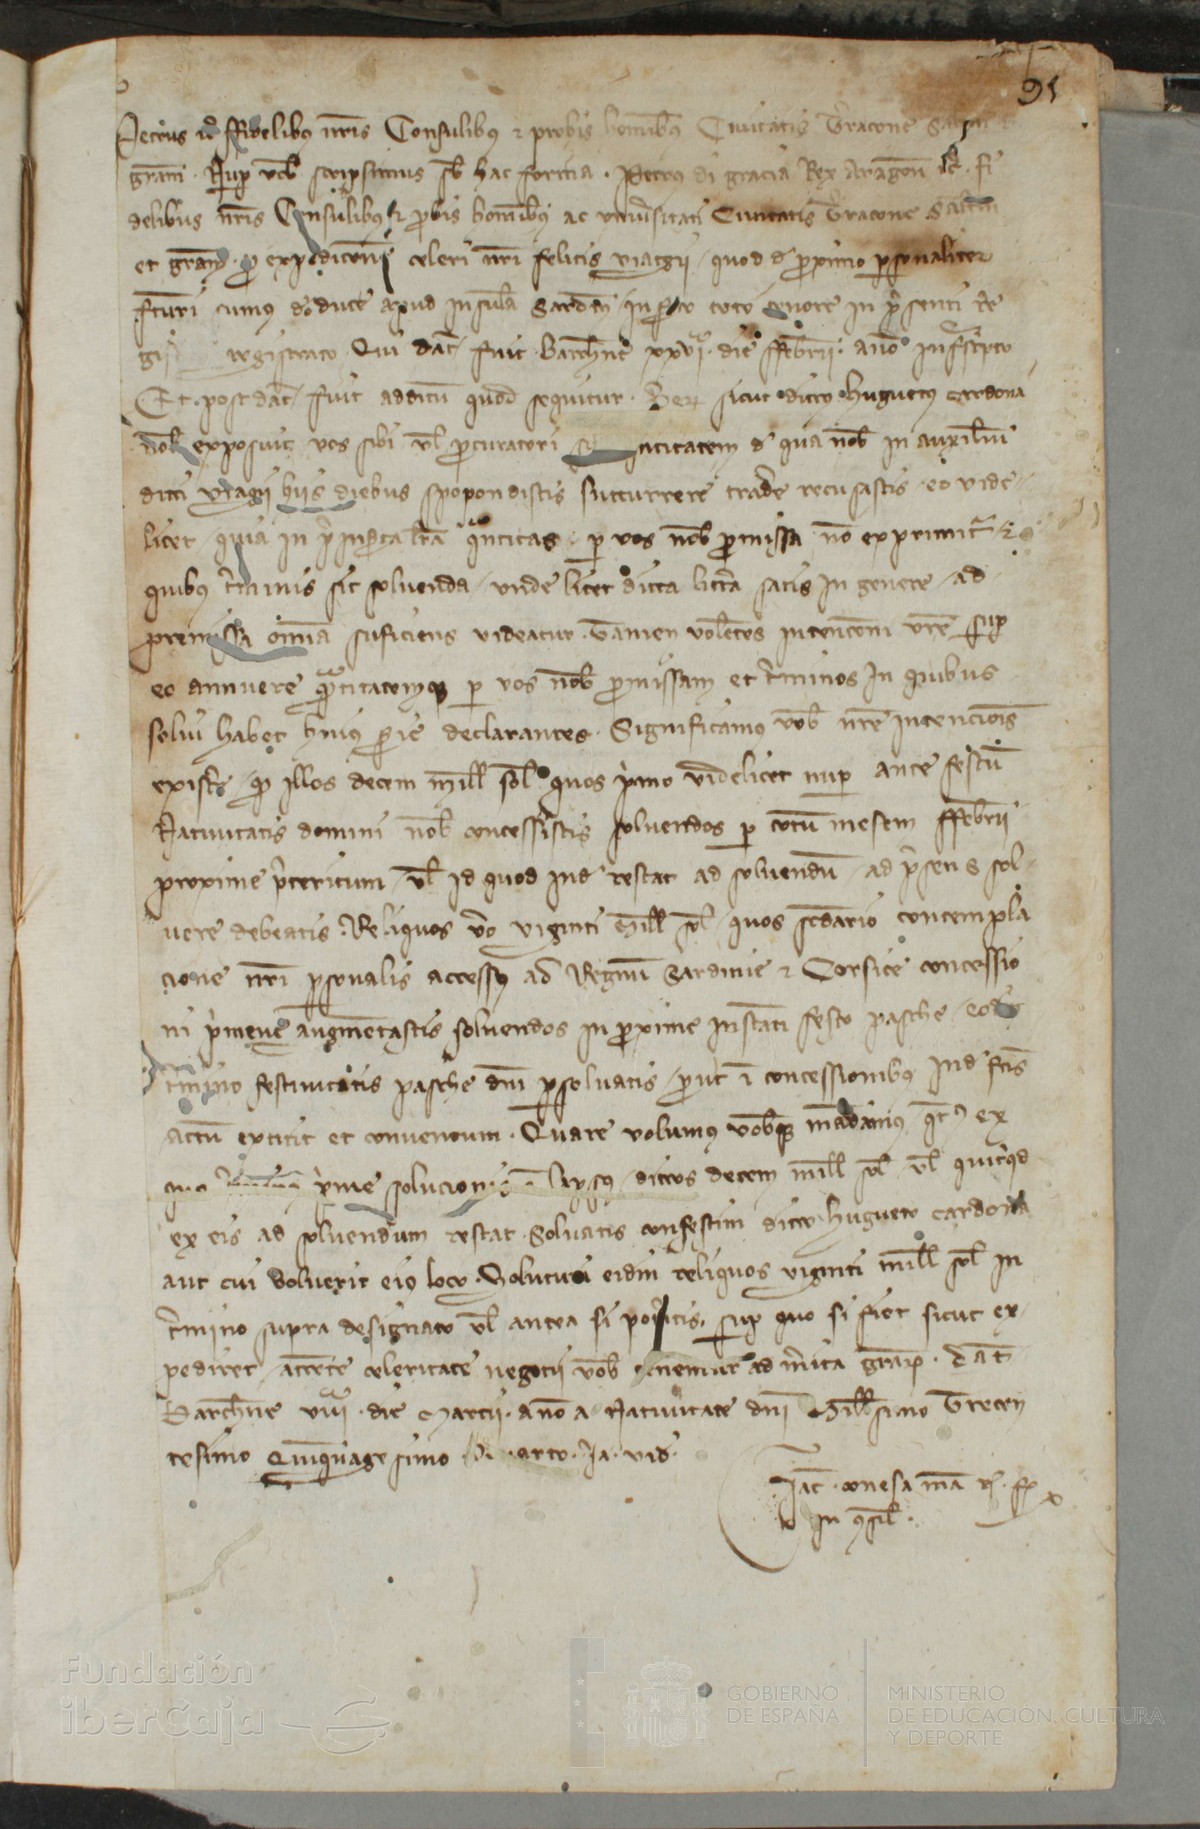 91
Petrus ff fidelibus nris Consulibus et probis hominibus Civitatis Tracone Salutem
gram. Nup vob scripsimus sb hac forma. Petrus di gracia Rex Aragon &c. fi
delibus nris Consulibus et pbis hominibus ac universitati Civitatis Tracone Saltem
et gram. p expedicione celeri nri felicis viatgii quod d proximo psonaliter
fcturi sumus duce apud Insula Sardin in toto tenore in psenti re
gi registrato. Qui dat fuit Barchne xxvi die ffebrii. ano infrascpto
Et post dat fuit additu quod sequitur. sicut dicto Huguetus Cardona
nob exposuit vos sibi vl pcuratori titatem d qua nob in auxiliu
dicti viagii hiis diebus spopondistis succurrere tradere recusastis eo vide
licet quia in pinserta lra quntitas p vos nob pmissa no exprimit
quibus tminis sit solvenda unde licet dicta littera satis in genere ad
premissa omia suficiens videatur. Tamen volentes intencioni vre sup
eo annuere quntitatemque p vos nob pmissam et tminos in quibus
solui habet huius serie declarantes. Significamus vob nre intencionis
existe qd illos decem mill sol quos pmo videlicet nup ante festu
Nativitatis domini nob concessistis solvendos p totu mesem ffebrii
proxime pteritum vl id quod ind restat ad solvendu ad psens sol
vere debeatis. Reliquos vo viginti mill sol quos secdario contempla
cione nri psonalis accessus ad Regnu Sardinie et Corsice concessio
ni pmene augmentastis solvendos in proxime instanti festo pasche eod
tmino festivitatis pasche dni psolvatis prout i concessionibus ind fcis
actu extitit et conventum. Quare volumus vobque mandamus qt ex
pme solucionis lapsus dictos decem mill sol vl quicqd
ex eis ad solvendum restat solvatis confestim dicto Hugueto Cardona
aut cui voluerit eius loco. Soluturi eidm reliquos viginti mill sol in
tmino supra designato vl antea si potitis, sup quo si fiet sicut ex
pediret attente celeritate negotii vob tenemur ad mita graru. Dat
Barchne viii die Marcii. ano a Nativitate dni Millesimo Trecen
tesimo Quinquagesimo quarto. Ja. vid.
Jac. conesa ma R. f
in csil.
Fundación
iberCaja
GOBIERNO
DE ESPAÑA
MINISTERIO
DE EDUCACIÓN, CULTURA
Y DEPORTE